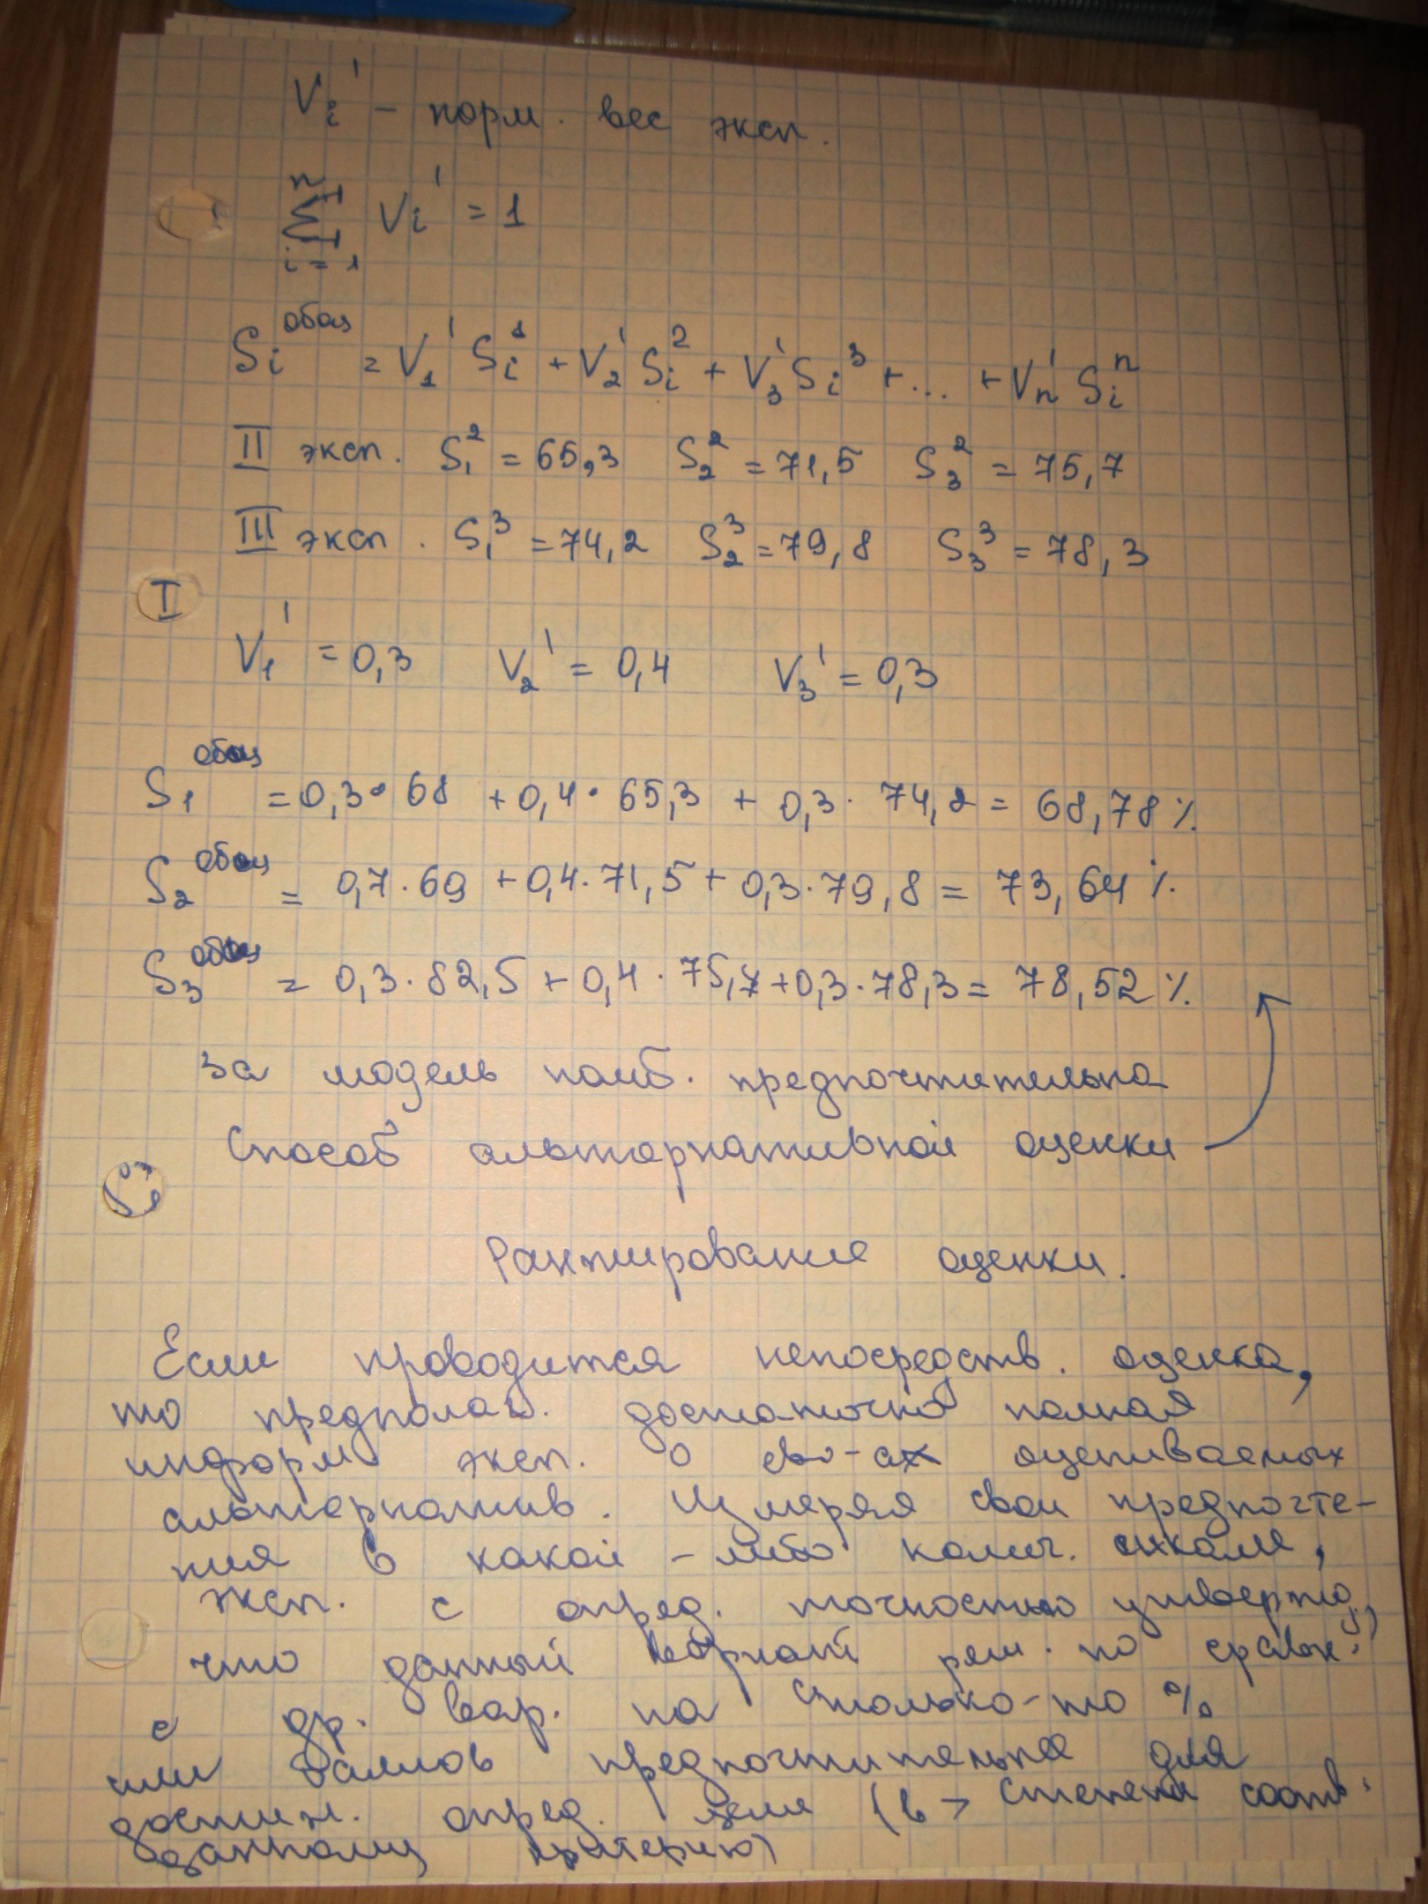 Vi' - норм. вес эксп.
n
∑ Vi' = 1
i = 1
Si общ = V1' Si^1 + V2' Si^2 + V3' Si^3 + ... + Vn' Si^n
II эксп. S1^2 = 65,3 S2^2 = 71,5 S3^2 = 75,7
III эксп. S1^3 = 74,2 S2^3 = 79,8 S3^3 = 78,3
I
V1' = 0,3 V2' = 0,4 V3' = 0,3
S1 общ = 0,3 · 68 + 0,4 · 65,3 + 0,3 · 74,2 = 68,78 %
S2 общ = 0,7 · 69 + 0,4 · 71,5 + 0,3 · 79,8 = 73,64 %
S3 общ = 0,3 · 82,5 + 0,4 · 75,7 + 0,3 · 78,3 = 78,52 %
3а модель наиб. предпочтительна
Способ альтернативной оценки
Ранжирование оценки.
Если проводится непосредств. оценка,
то предполаг. достаточно полная
информ эксп. о сво-ах оцениваемых
альтернатив. Измеряя свои предпочте-
ния в какой-либо колич. шкале,
эксп. с опред. точностью утвержд,
что данный вариант реш. по сравн.
с др. вар. на столько-то %
или баллов предпочтительнее для
достиж. опред. цели (в > степени соотв.
данному критерию)